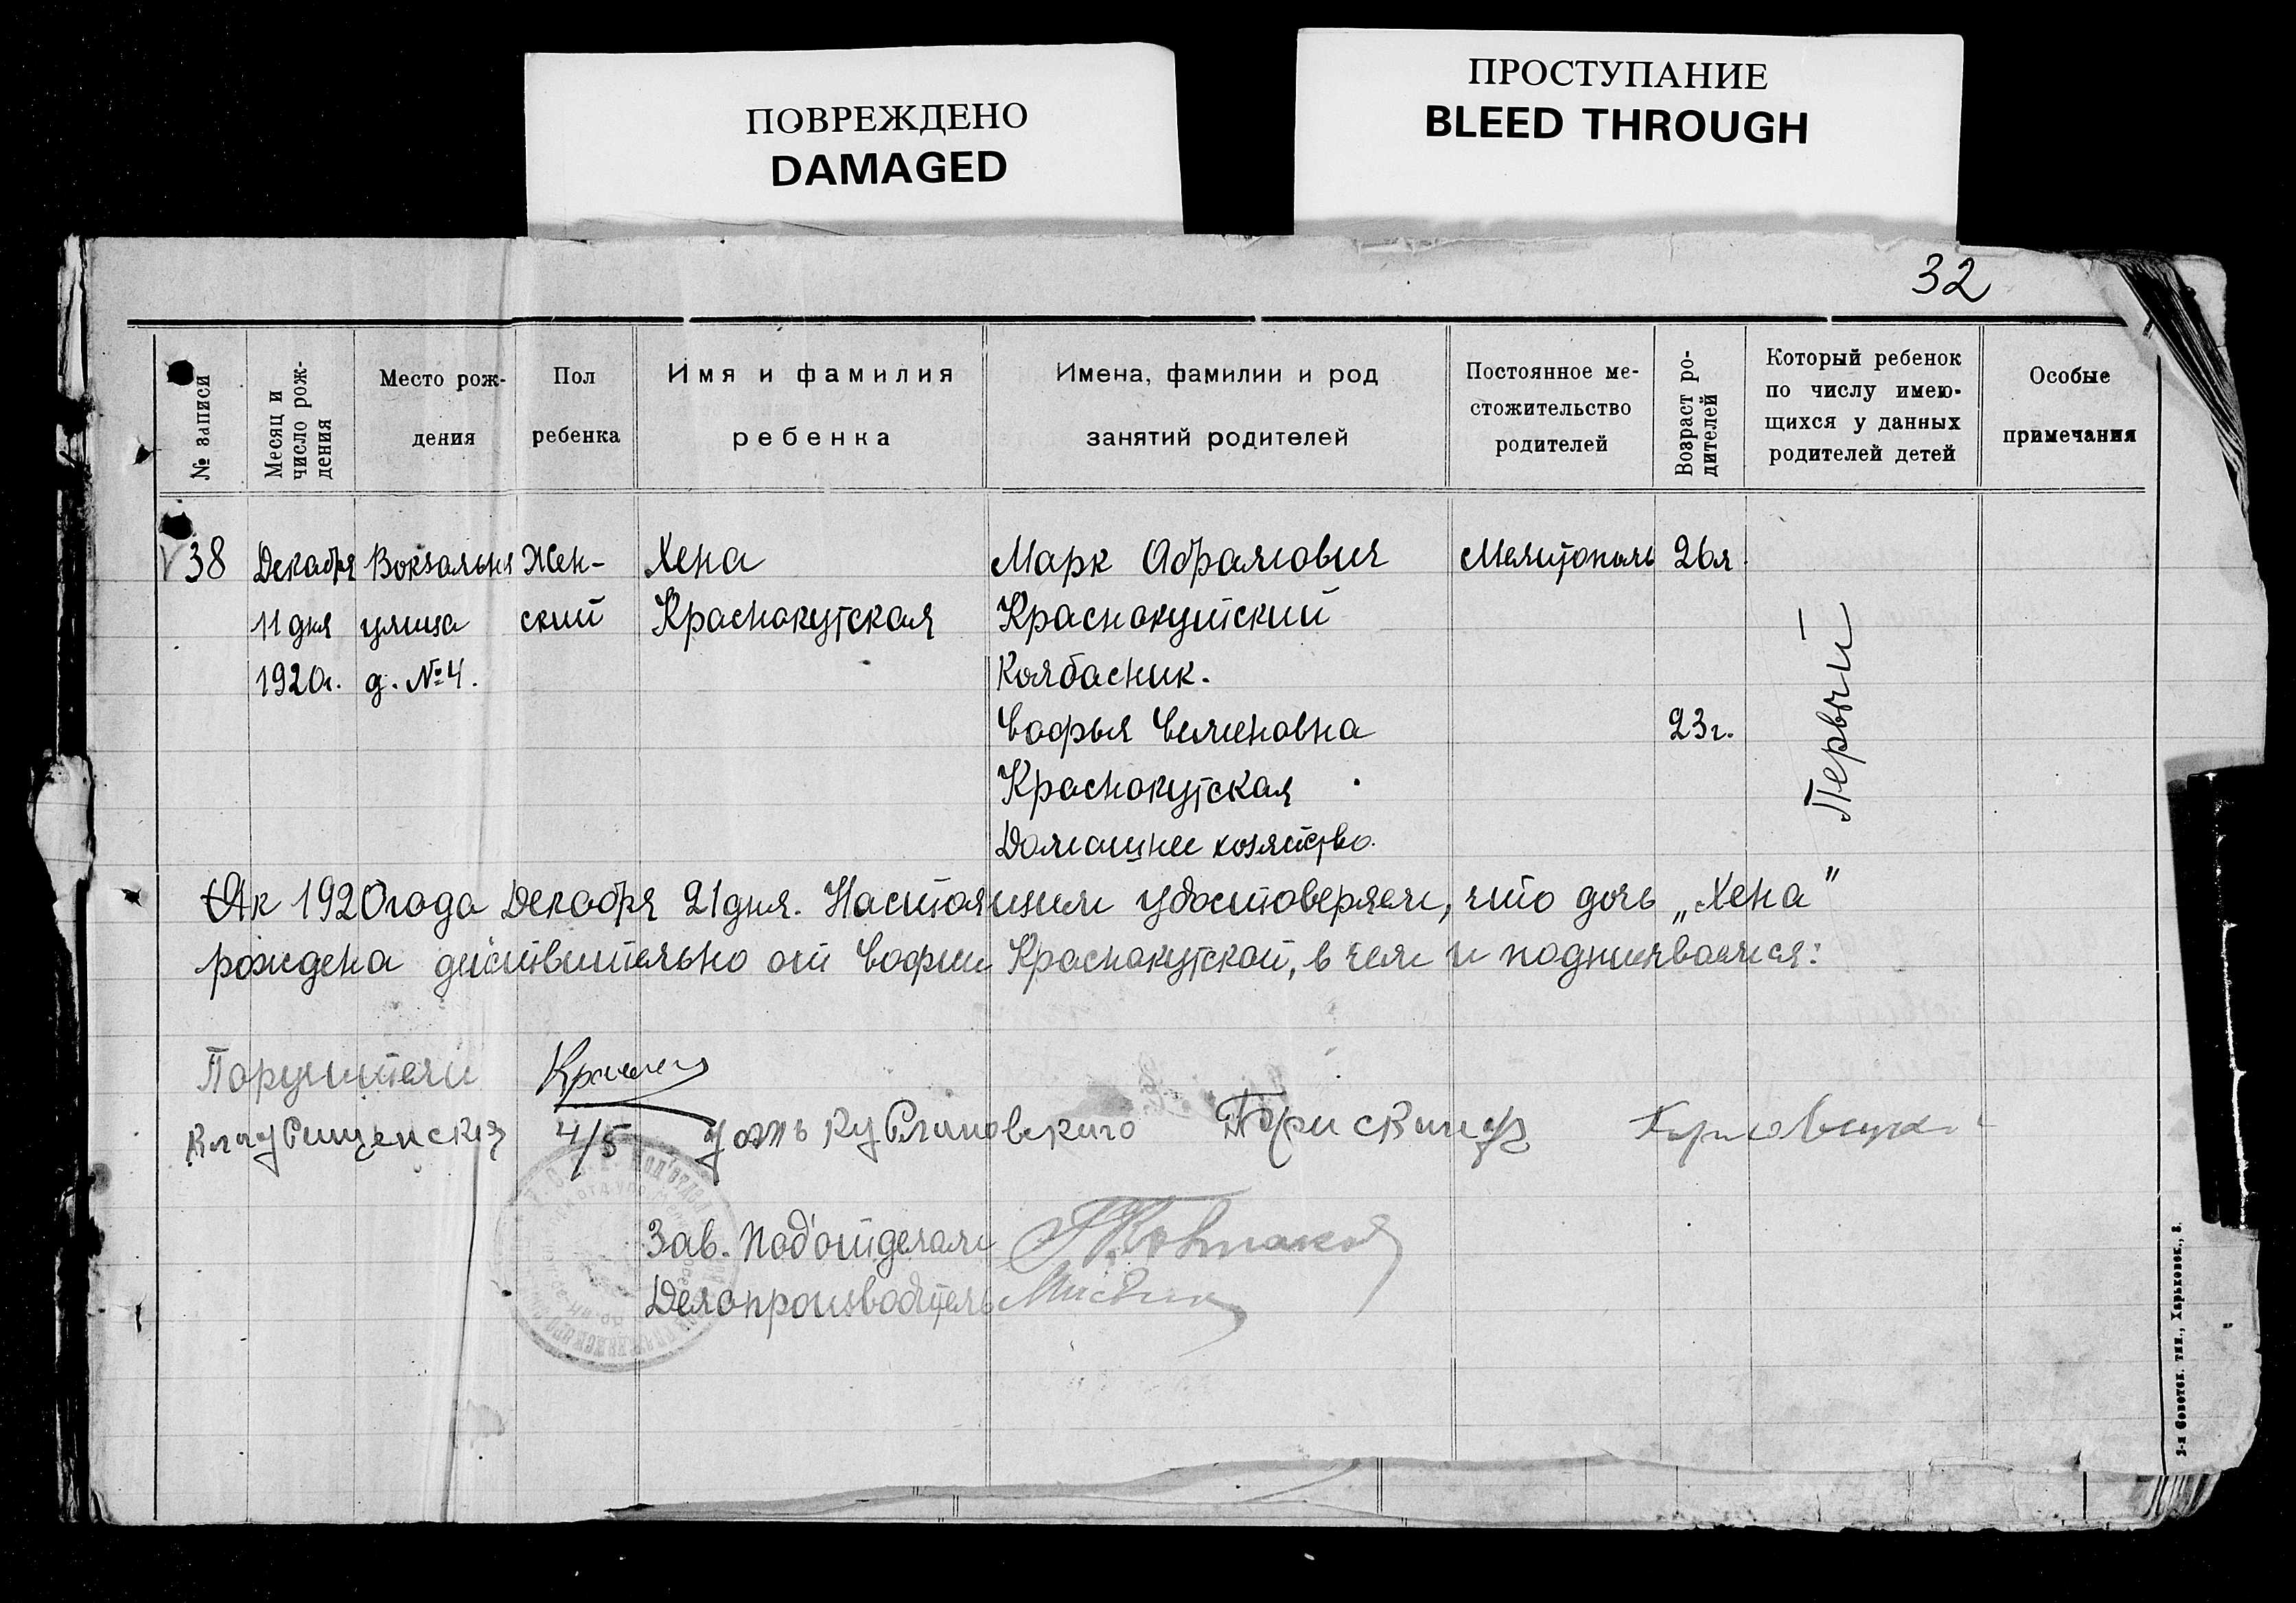 ПОВРЕЖДЕНО
DAMAGED
ПРОСТУПАНИЕ
BLEED THROUGH
32
№ записи
Месяц и
число рож-
дения
Место рож-
дения
Пол
ребенка
Имя и фамилия
ребенка
Имена, фамилии и род
занятий родителей
Постоянное ме-
стожительство
родителей
Возраст ро-
дителей
Который ребенок
по числу имею-
щихся у данных
родителей детей
Особые
примечания
38
Декабря
11 дня
1920г.
Вокзальня
улица
д. №4.
Жен-
ский
Хена
Краснокутская
Марк Абрамович
Краснокутский
Колбасник.
Софья Семеновна
Краснокутская
Домашнее хозяйство.
Мелитополь
26л.
23г.
Первый
Ак 1920 года Декабря 21 дня. Настоящим удостоверяем, что дочь „Хена"
рождена действительно от Софии Краснокутской, в чем и подписываемся:
Поручители
4/5
Зав. Под'отделом
Делопроизводитель
2-я Советск. тип., Харьковск., 8.